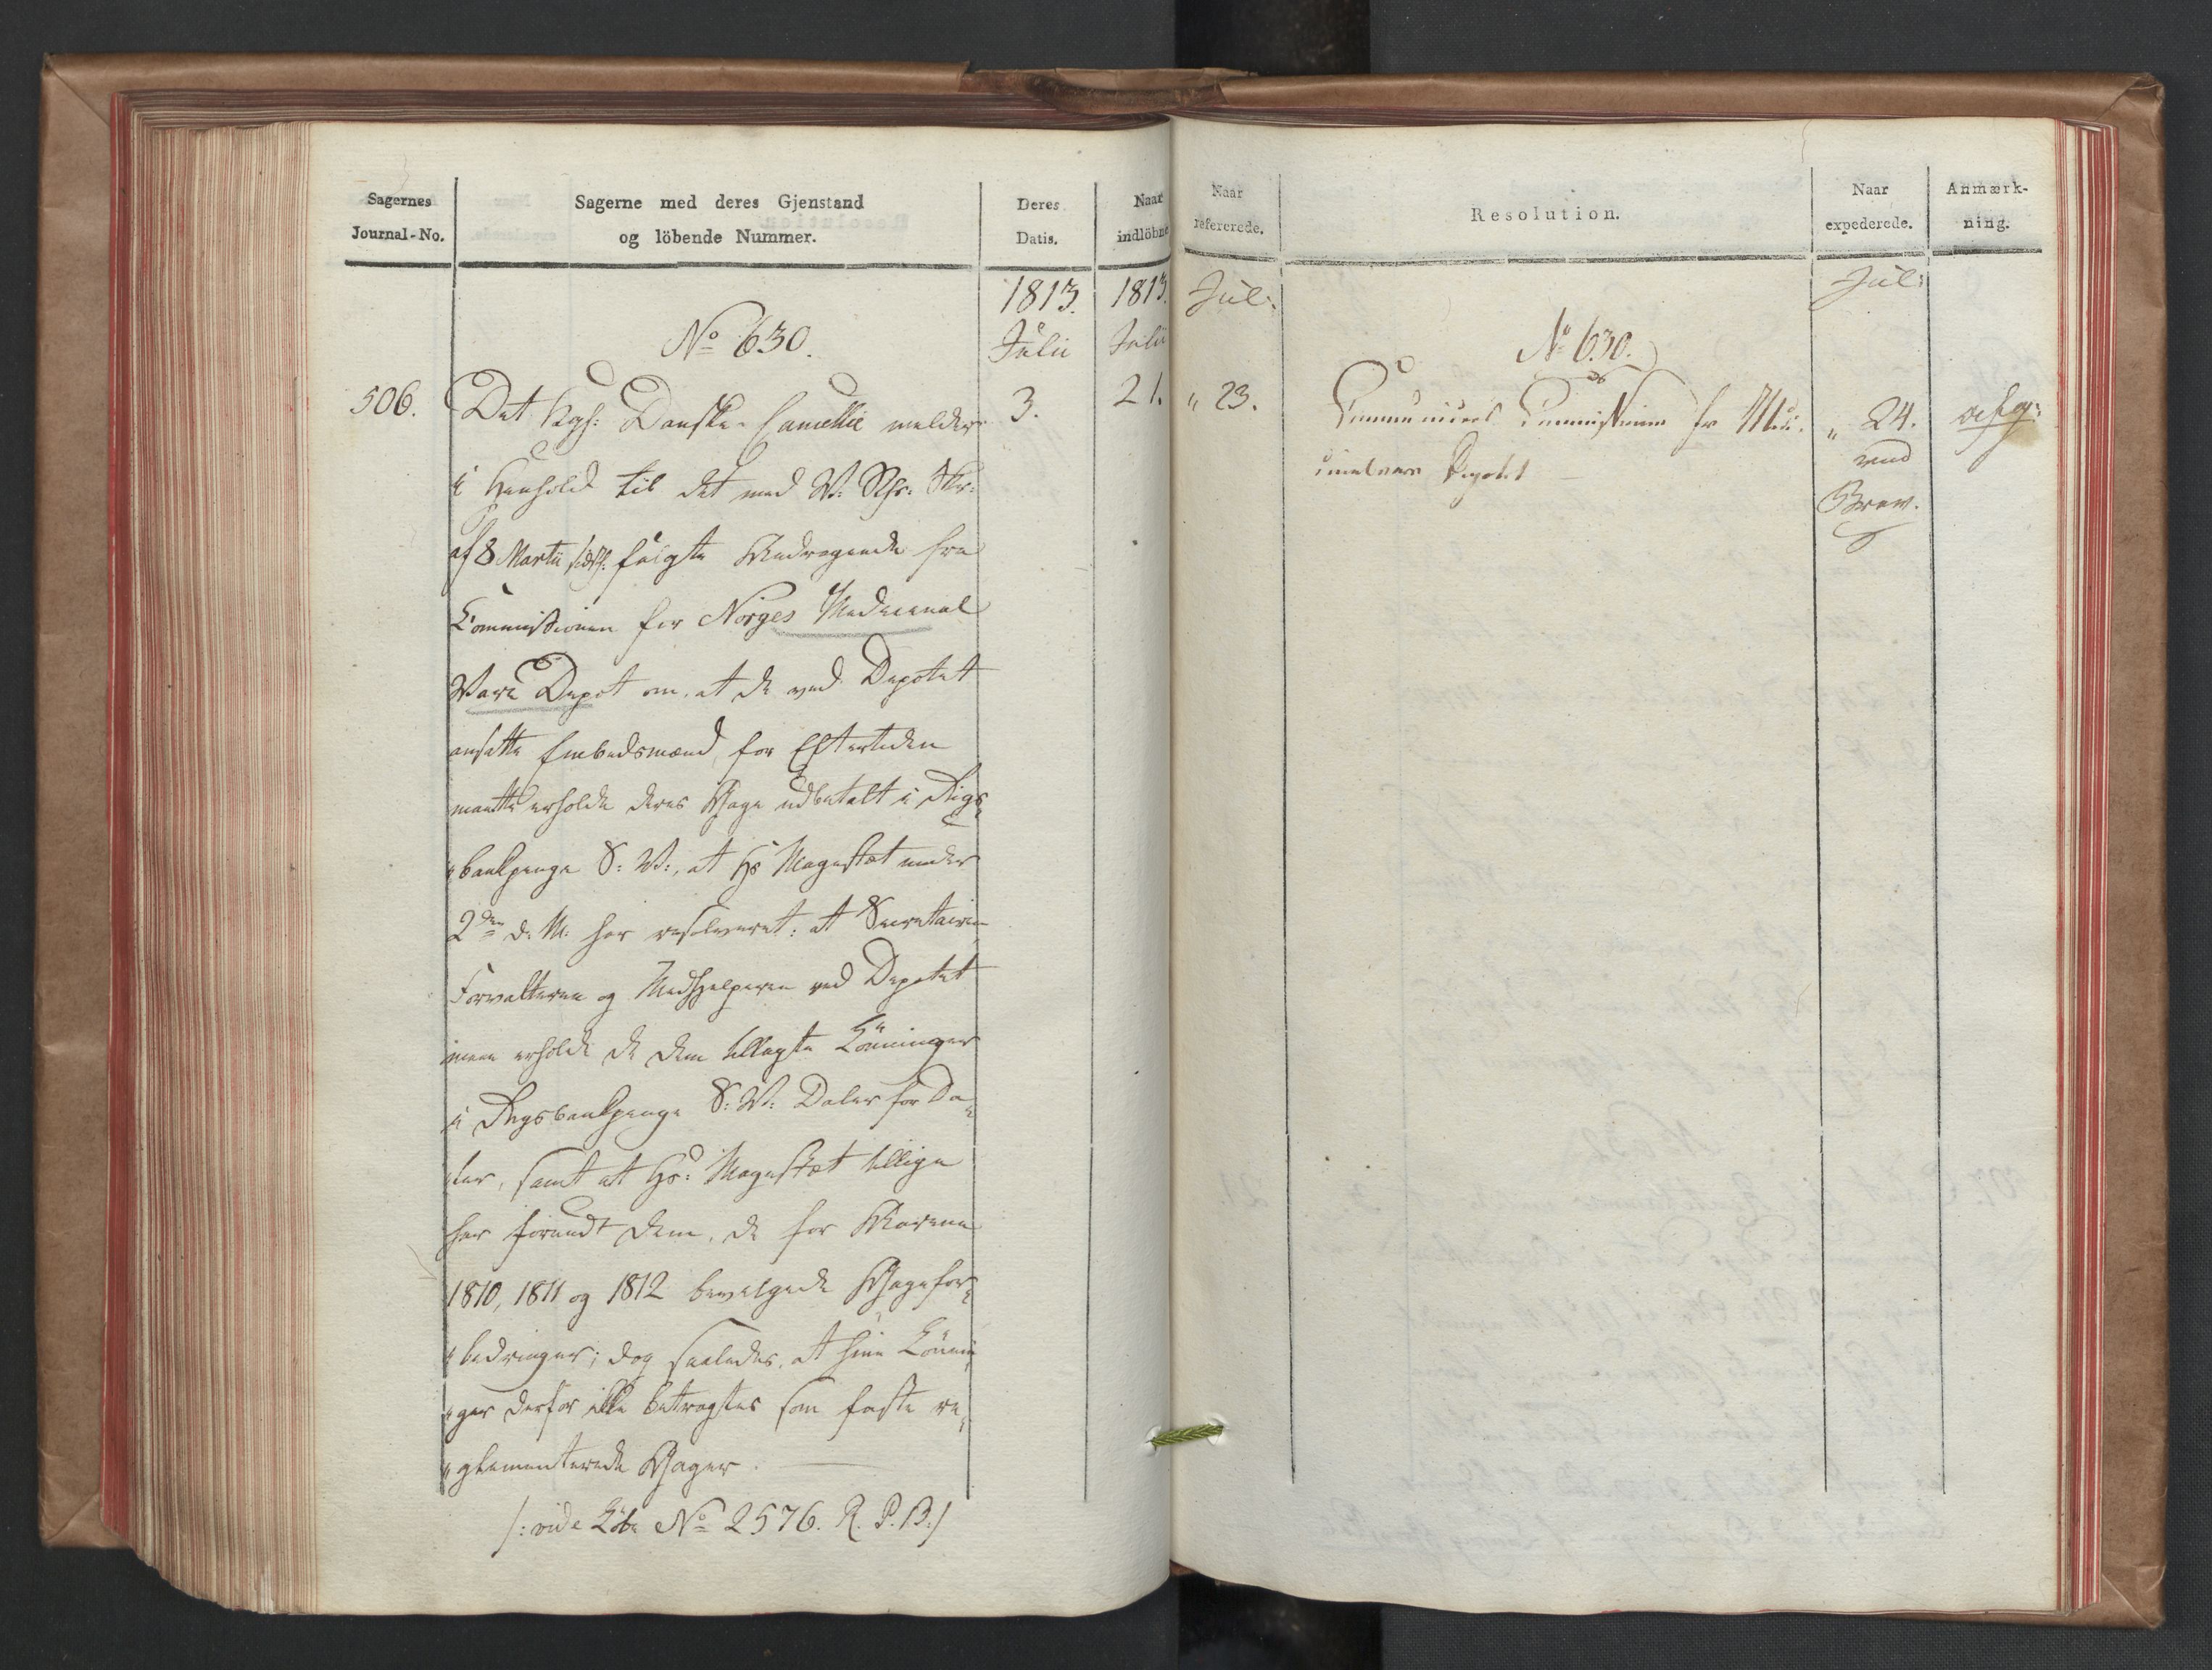 Sagernes
Journal-No.
Sagerne med deres Gjenstand
og löbende Nummer.
Deres
Datis.
Naar
indlöbne
1813.
Julii
1813.
Julii
No 630.
506.
3.
21.
Det Kgl: Danske Cancellie melder
i Henhold til det med V:
af 8 Martii sidstl: fulgte Andragende fra
Commissionen for Norges Medicinal
Vare Depot om, at de ved Depotet
ansatte Embedsmænd for Eftertiden
maatte erholde deres Gage udbetalt i Rigs
bankpenge S: V:, at Hs Majestæt under
2den d: M: har resolveret: at Secretairen
Forvalteren og Medhjelperen ved Depotet
maae erholde de dem tillagte Lönninger
i Rigsbankpenge S: V: Daler for Da
ler, samt at Hs: Majestæt tillige
har forundt dem, de for Aarene
1810, 1811 og 1812 bevilgede Gagefor
bedringer; dog saaledes, at hine Lönnin
ger derfor ikke betragtes som faste re
glementerede Gager.
/: vide Löbe No 2576. R. P. B:/
Naar
refererede.
Resolution.
Naar
expederede.
Anmærk-
ning.
Jul:
Jul:
No 630.
" 23.
Communiceres Commissionen for Medi
cinalvare Depotet
" 24.
ved
Brev.